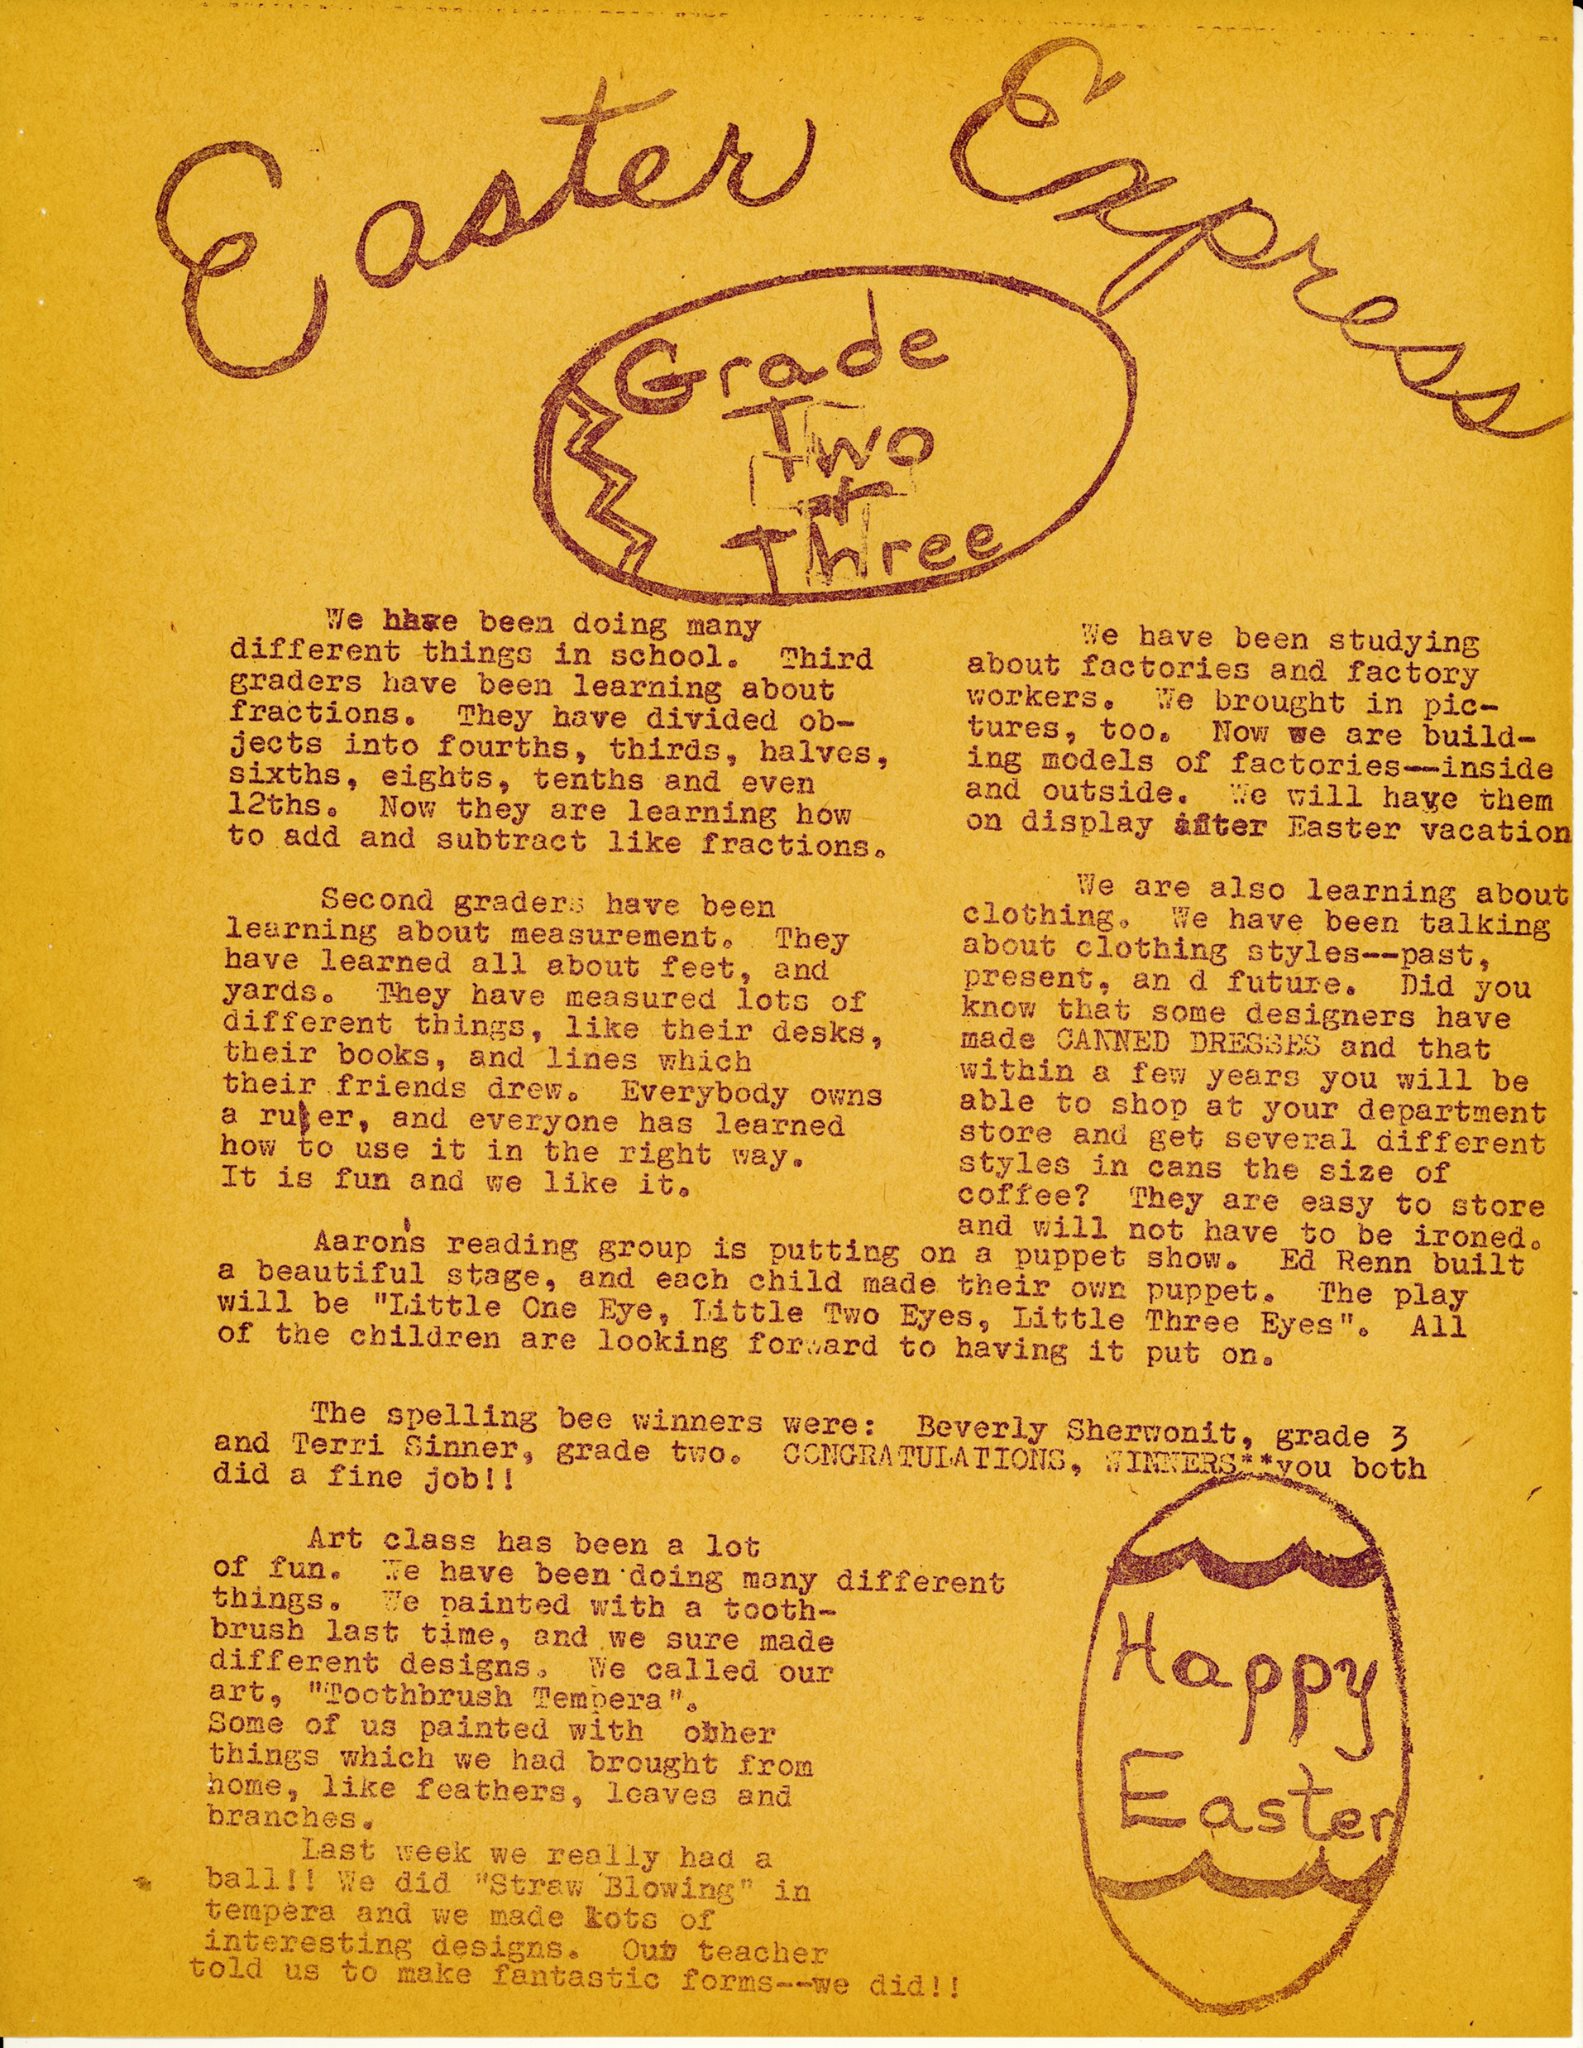 Easter Express
Grade
Two
+
Three
We have been doing many
different things in school. Third
graders have been learning about
fractions. They have divided ob-
jects into fourths, thirds, halves,
sixths, eights, tenths and even
12ths. Now they are learning how
to add and subtract like fractions.
Second graders have been
learning about measurement. They
have learned all about feet, and
yards. They have measured lots of
different things, like their desks,
their books, and lines which
their friends drew. Everybody owns
a ruler, and everyone has learned
how to use it in the right way.
It is fun and we like it.
We have been studying
about factories and factory
workers. We brought in pic-
tures, too. Now we are build-
ing models of factories--inside
and outside. We will have them
on display after Easter vacation
We are also learning about
clothing. We have been talking
about clothing styles--past,
present, an d future. Did you
know that some designers have
made CANNED DRESSES and that
within a few years you will be
able to shop at your department
store and get several different
styles in cans the size of
coffee? They are easy to store
and will not have to be ironed.
Aaron's reading group is putting on a puppet show. Ed Renn built
a beautiful stage, and each child made their own puppet. The play
will be "Little One Eye, Little Two Eyes, Little Three Eyes". All
of the children are looking forward to having it put on.
The spelling bee winners were: Beverly Sherwonit, grade 3
and Terri Sinner, grade two. CONGRATULATIONS, WINNERS**you both
did a fine job!!
Art class has been a lot
of fun. We have been doing many different
things. We painted with a tooth-
brush last time, and we sure made
different designs. We called our
art, "Toothbrush Tempera".
Some of us painted with other
things which we had brought from
home, like feathers, leaves and
branches.
Last week we really had a
ball!! We did "Straw Blowing" in
tempera and we made lots of
interesting designs. Our teacher
told us to make fantastic forms--we did!!
Happy
Easter